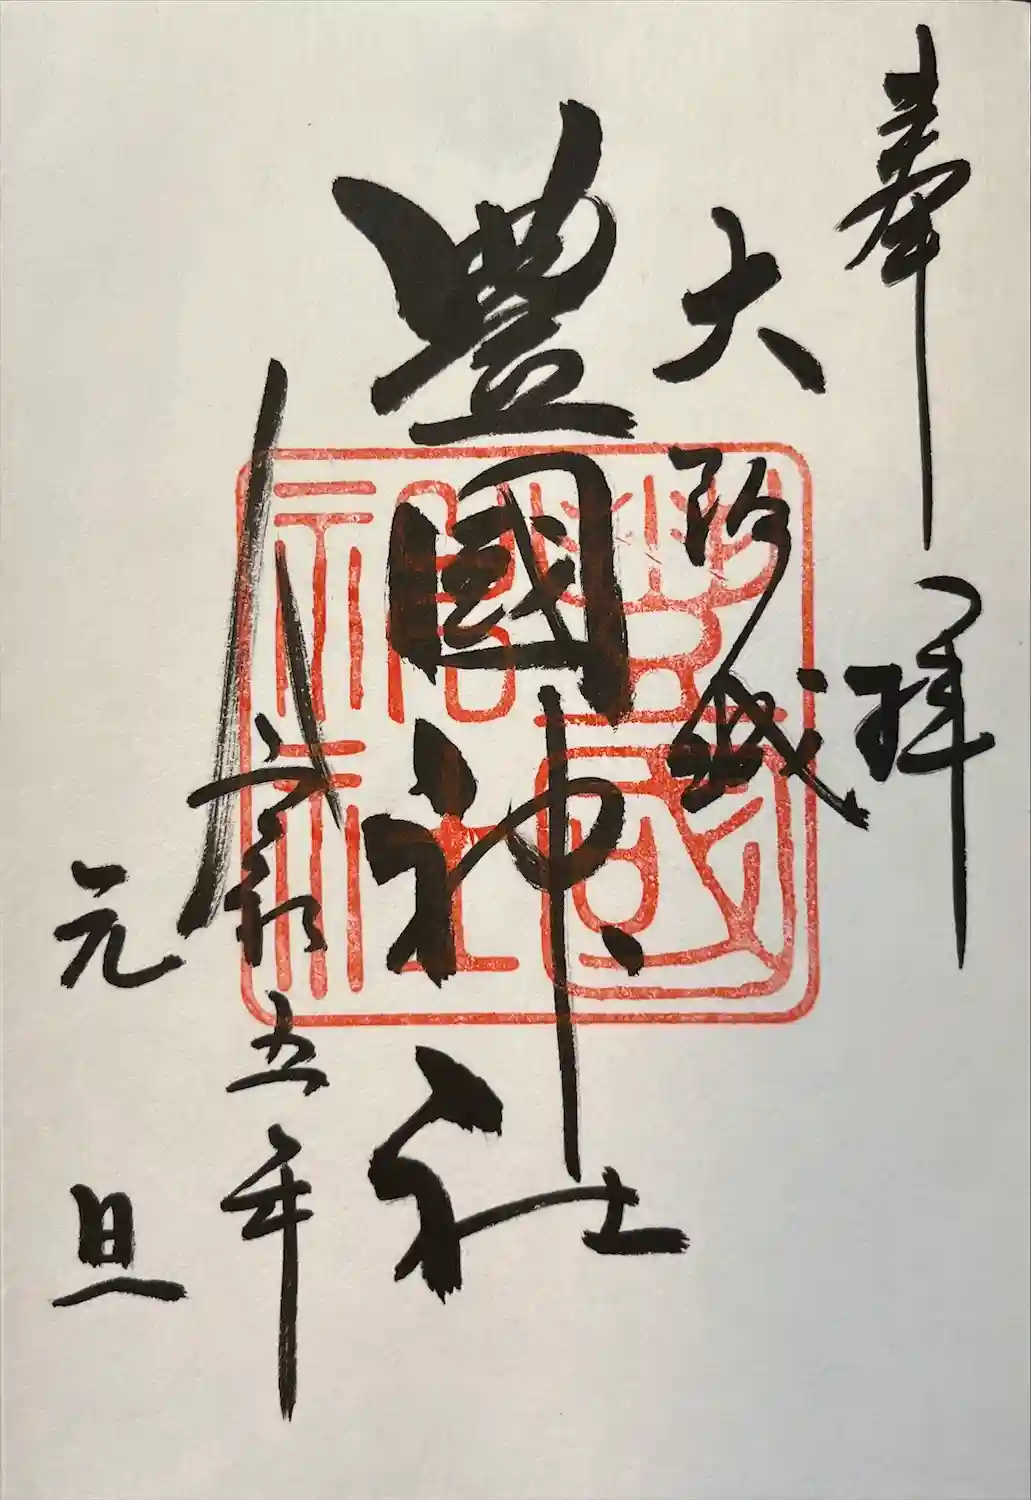 奉拝
大阪城
豊國神社
令和五年
元旦
豊國
神社